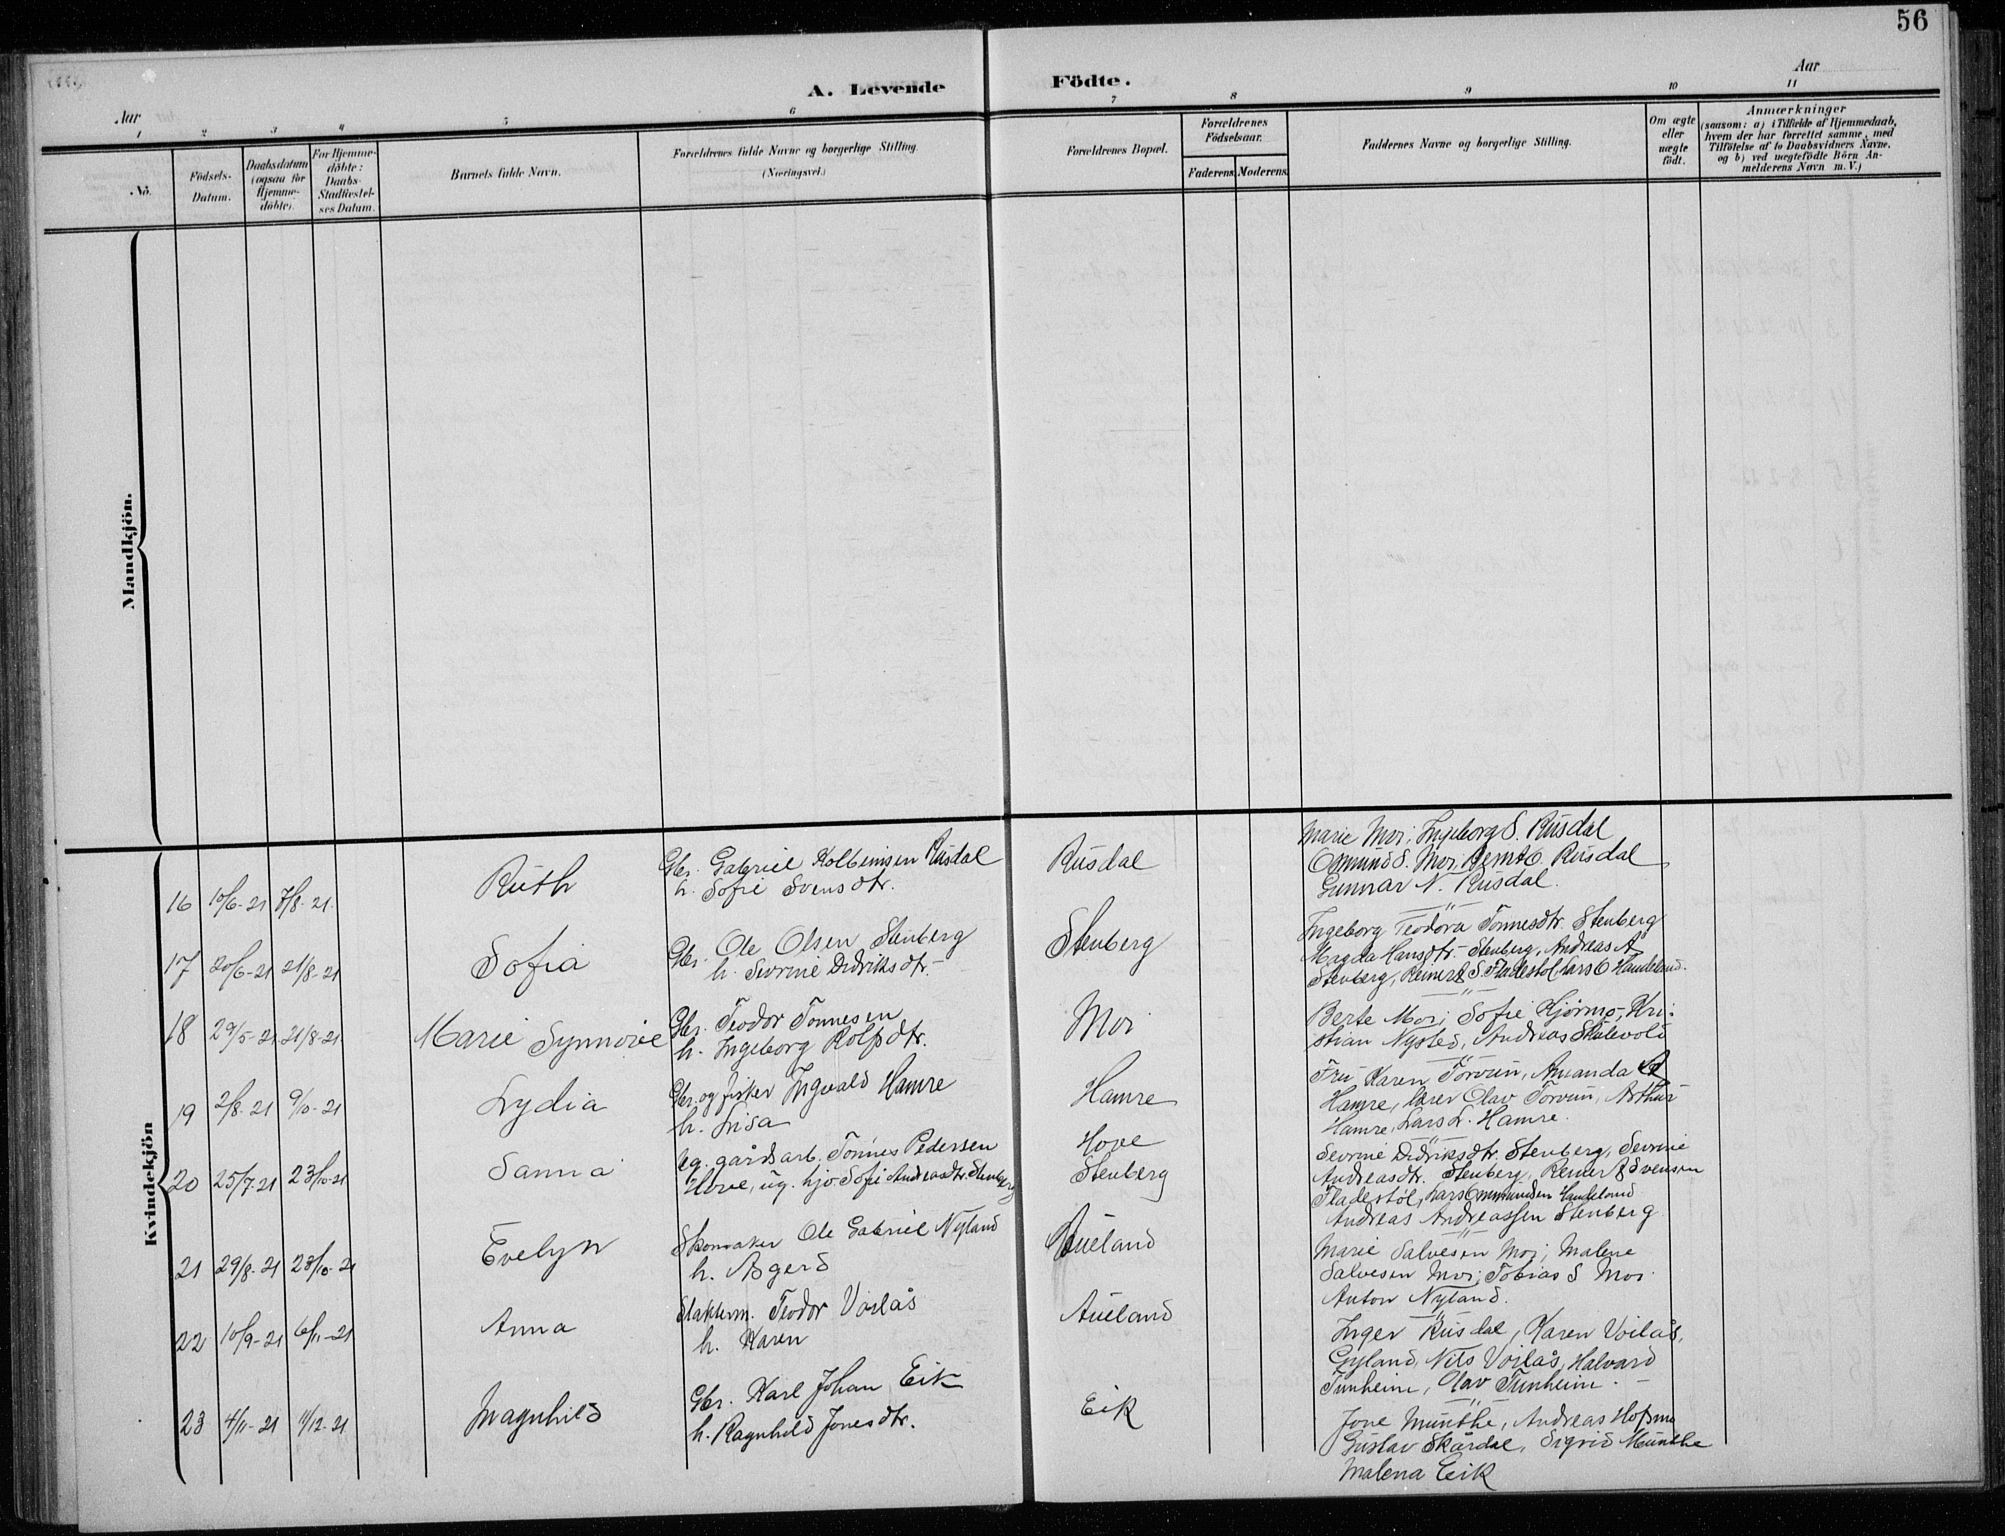 56
A. Levende Födte.
Aar
Aar
1 2 3 4 5 6 7 8 9 10 11
No.
Födsels-
Datum.
Daabsdatum
(ogsaa for
Hjemme-
döbte).
For Hjemme-
döbte:
Daabs-
Stadfæstel-
ses Datum.
Barnets fulde Navn.
Forældrenes fulde Navne og borgerlige Stilling.
(Næringsvei.)
Forældrenes Bopæl.
Forældrenes
Födselsaar.
Faderens Moderens
Faddernes Navne og borgerlige Stilling.
Om ægte
eller
uægte
födt.
Anmærkninger
(saasom: a) i Tilfælde af Hjemmedaab,
hvem der har forrettet samme, med
Tilföielse af to Daabsvidners Navne,
og b) ved uægtefödte Börn An-
melderens Navn m. V.)
Mandkjön.
Kvindekjön
16 10/6-21 7/8-21 Ruth
Gbr. Gabriel Kolbeinsen Rusdal
h. Sofie Svensdtr.
Rusdal
Marie Moi, Ingeborg S. Rusdal
Osmund S. Moi, Bernt O. Rusdal
Gunnar N. Rusdal.
17 20/6-21 21/8-21 Sofia
Gbr. Ole Olsen Stenberg
h. Sevrine Didriksdtr.
Stenberg
Ingeborg Teodora Tonnesdtr. Stenberg
Magda Hansdtr. Stenberg, Andreas A
Stenberg, Reinert S. Fladestøl, Lars O Handeland.
18 29/5-21 21/8-21 Marie Synnove
Gbr. Teodor Tonnesen
h. Ingeborg Rolfsdtr.
Moi
Berte Moi, Sofie Kjørmo, Kri-
stian Nysted, Andreas Skålevold
19 2/8-21 9/10-21 Lydia
Gbr. og fisker Ingvald Hamre
h. Lisa
Hamre
Fru Karen Torvun, Amanda A
Hamre, lærer Olav Torvun, Arthur
Hamre, Lars L. Hamre.
20 25/7-21 23/10-21 Sanna
ug. gårdsarb. Tønnes Pedersen
Hove, ug. hjv Sofie Andreasdtr. Stenberg
Hove
Stenberg
Sevrine Didriksdtr. Stenberg, Sevrine
Andreasdtr. Stenberg, Reinert Svensen
Fladestøl, Lars Ommundsen Handeland
Andreas Andreassen Stenberg
21 29/8-21 23/10-21 Evelyn
Skomaker Ole Gabriel Nyland
h. Asgerd
Aueland
Marie Salvesen Moi, Malene
Salvesen Moi, Tobias S Moi
Anton Nyland.
22 10/9-21 6/11-21 Anna
Slakterm. Teodor Voilås
h. Karen
Aueland
Inger Rusdal, Karen Voilås,
Gyland, Nils Voilås, Halvard
Tunheim, Olav Tunheim.
23 4/11-21 11/12-21 Magnhild
Gbr. Karl Johan Eik
h. Ragnhild Jonesdtr.
Eik
Jone Munthe, Andreas Hofsmo
Gustav Skårdal, Sigrid Munthe
Malena Eik